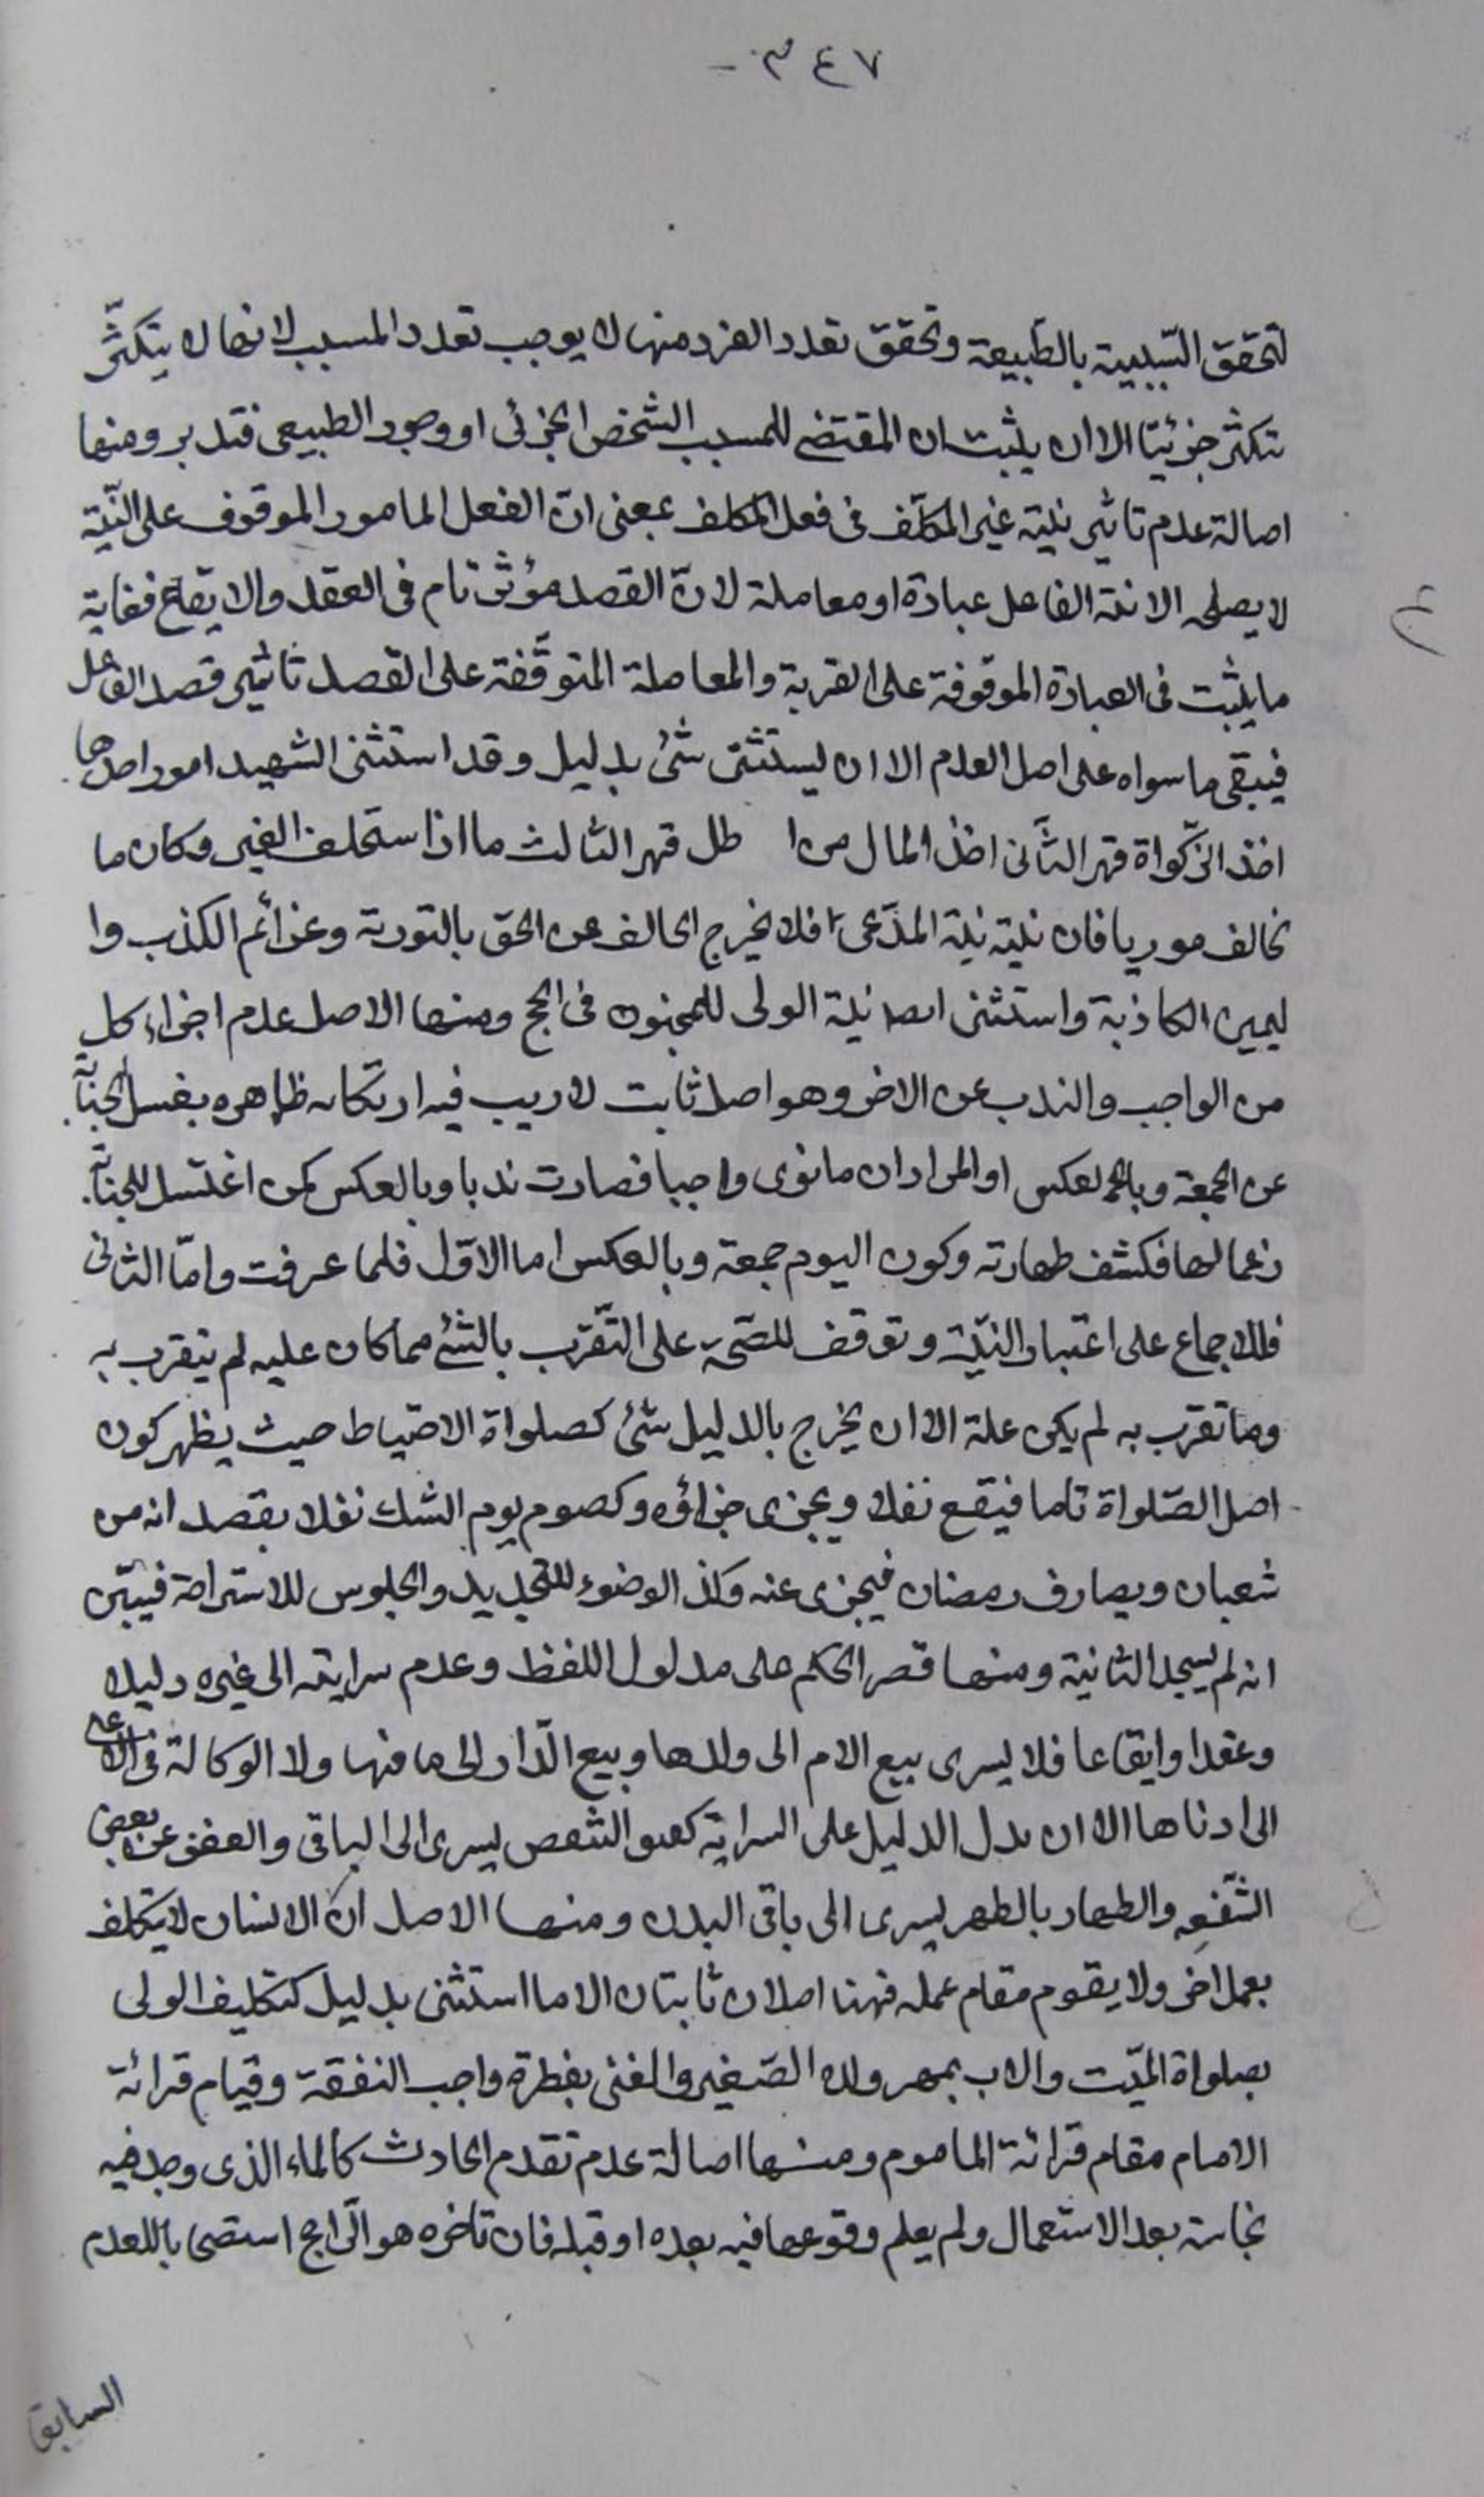 ٣٤٧ -
لتحقق السّببية بالطّبيعة وتحقق تعدد الفرد منها لا يوجب تعدد المسبب لانها لا يتكثّر
بتكثر جزئيتا الا ان يثبت ان المقتضى للمسبب الشخص الجزئى او وجود الطبيعى فتدبر ومنها
اصالة عدم تاثير نيته غير المكلّف فى فعل المكلف بمعنى انّ الفعل المامور الموقوف على النّيّة
لا يصلح الا نية الفاعل عبادة او معاملة لانّ القصد مؤثر تام فى العقد والايقاع فغاية
ما يثبت فى العبادة الموقوفة على القربة والمعاملة المتوقّفة على القصد تاثير قصد الفاعل
فيبقى ما سواه على اصل العدم الا ان يستثنى شئ بدليل وقد استثنى الشهيد امورا احدها
اخذ الزّكواة قهر الثّانى اخذ المال من ا طل قهر الثالث ما اذا ستحلف الغير وكان ما
نحالف موريا فان نيته نية المدّعى فلا يخرج الحالف عن الحق بالتورية وعن اثم الكذب وا
ليمين الكاذبة واستثنى ايضا نية الولى للمجنون فى الحج ومنها الاصل عدم اجزاء كل
من الواجب والندب عن الاخر وهو اصل ثابت لا ريب فيه ار تكابه ظاهره بغسل الجنابة
عن الجمعة وبالعكس او المراد ان ما نوى واجبا فصارت ندبا وبالعكس كمن اغتسل للجنابة
زعما لها فكشف طهارته وكون اليوم جمعة وبالعكس اما الاوّل فلما عرفت وامّا الثانى
فللاجماع على اعتبار النّيّة وتوقف للصّحة على التّقرّب بالشئ مما كان عليه لم يتقرب به
وما تقرب به لم يكن علة الا ان يخرج بالدليل شئ كصلواة الاحتياط حيث يظهر كون
اصل الصّلواة تاما فيقع نفلا ويجزى جزاؤه وكصوم يوم الشك نفلا بقصد انه من
شعبان ويصادف رمضان فيجزى عنه وكذا الوضوء للتجديد والجلوس للاستراحة فيتبيّن
انه لم يسجد الثانية ومنها قصر الحكم على مدلول اللفظ وعدم سرايته الى غيره دليلا
وعقدا وايقاعا فلا يسرى بيع الام الى ولدها وبيع الدّار الى ما فيها ولا الوكالة فى الاعلى
الى ادناها الا ان يدل الدليل على السراية كعتق الشقص يسرى الى الباقى والعفو عن بعض
الشّفعه والظهار بالظهر يسرى الى باقى البدن ومنها الاصل انّ الانسان لا يتكلف
بعمل اخر ولا يقوم مقام عمله فهنا اصلان ثابتان الا ما استثنى بدليل كتكليف الولى
بصلواة الميّت والاب بمهر ولده الصّغير والغنى بفطرة واجب النفقة وقيام قرائة
الامام مقام قرائة الماموم ومنها اصالة عدم تقدم الحادث كالماء الذى وجد فيه
نجاسة بعد الاستعمال ولم يعلم وقوعها فيه بعده او قبله فان تاخره هو الرّاجح استصحابا للعدم
السابق